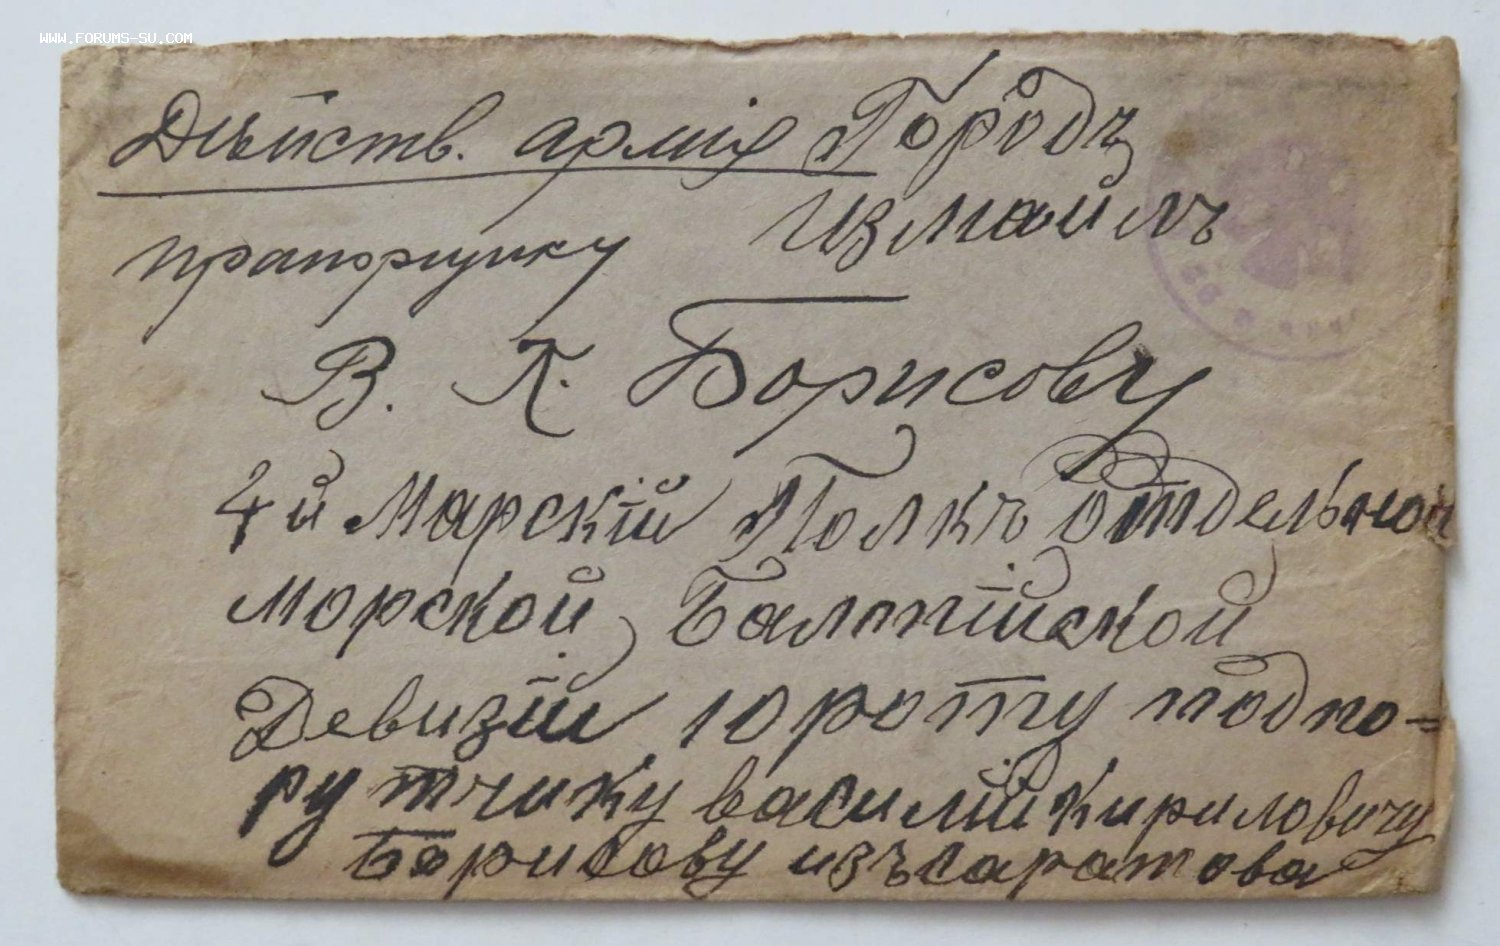 WWW.FORUMS-SU.COM
Дѣйств. армія Городъ
Измаилъ
прапорщику
В. К. Борисову
4й Марскій Полкъ отдельной
морской Балтійской
Девизіи 10 роту подпо=
рутчику василій Кириловичу
Борисову изъ саратова